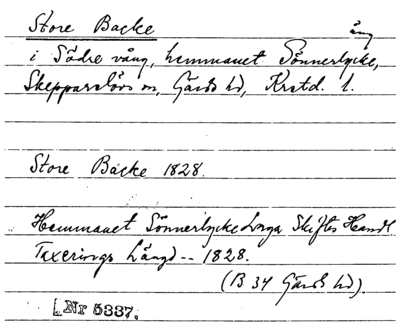 Store Backe
äng
i Södre vång, hemmanet Sönnerlycke,
Skepparslövs sn, Gärds hd, Krstd. l.
Store Backe 1828.
Hemmanet Sönnerlycke Laga Skiftes Handl
Taxerings Längd -- 1828.
(B 34 Gärds hd).
Nr 5337.